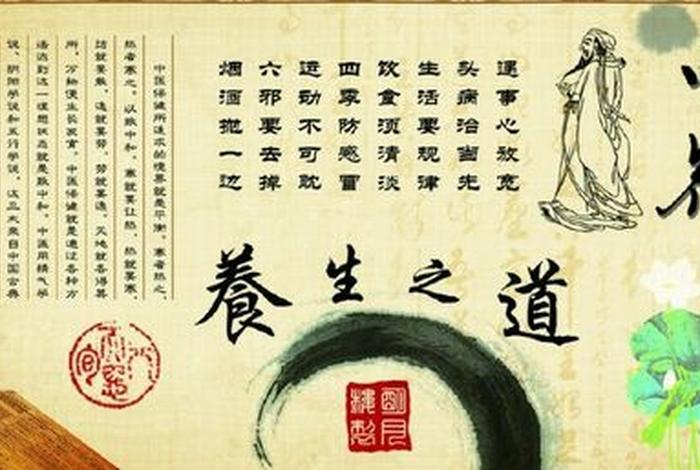 遇事心放宽
头病治当先
生活要规律
饮食须清淡
四季防感冒
运动不可耽
六邪要去掉
烟酒抛一边
養生之道
中医保健所追求的境界就是平衡，寒者热之，
热者寒之，以致中和。寒就要让热，热就要寒，
就要散，逸就要劳，劳就要逸，天地就各得其
所，万物便生长发育。中医保健就是通过各种方
法达到这一理想状态就是致中和。中医用精气学
说、阴阳学说和五行学说，这三大来自中国古典